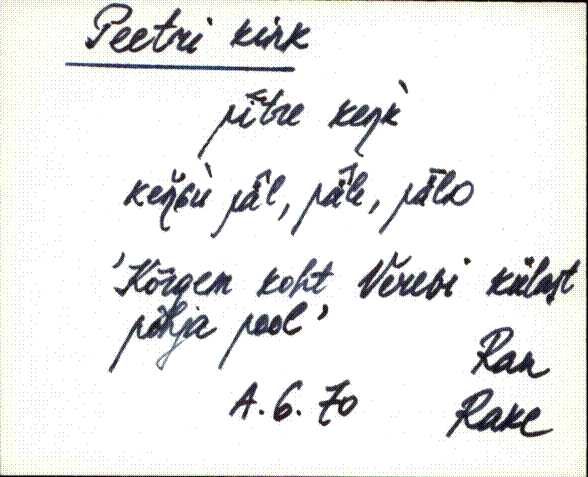 Peetri kink
pītre keŋk
keŋ̆ɢù pǟl, pǟle, pǟlo
'Kõrgem koht Verevi külast
põhja pool'
Ran
A. 6. 70 Rake